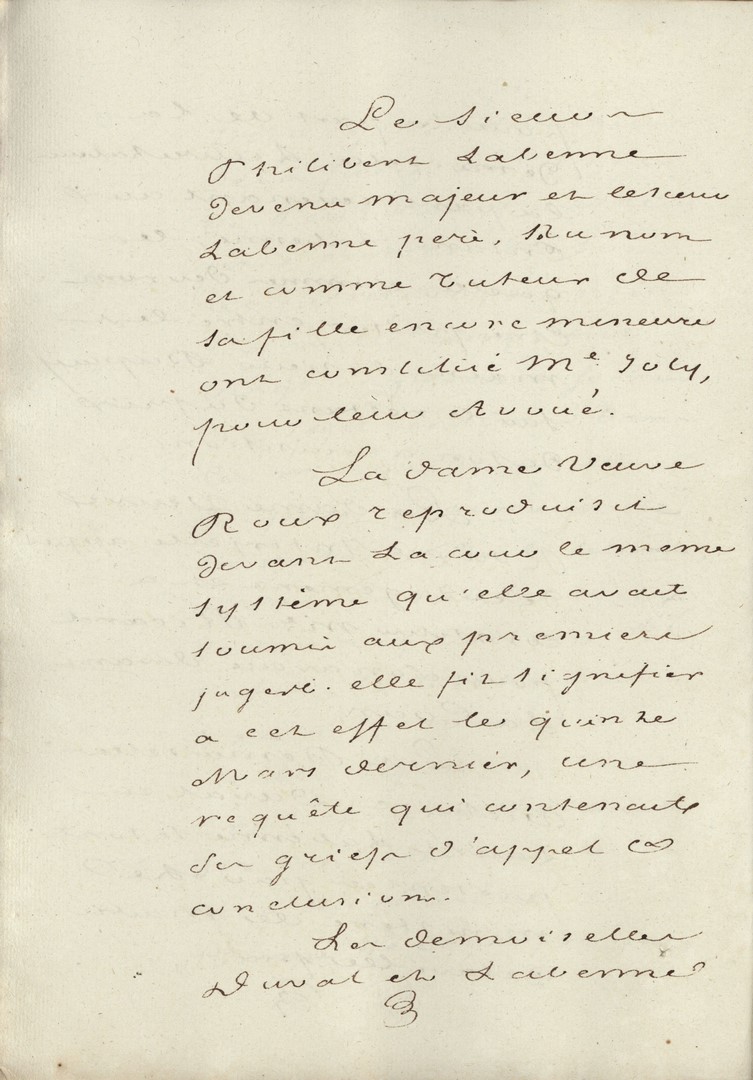 Le Sieur
Philibert Labenne
devenu majeur et le sieur
Labenne père, au nom
et comme tuteur de
sa fille encore mineure
ont constitué Me Joly,
pour leur avoué.
La dame Veuve
Roux reproduisit
devant la cour le même
système qu'elle avait
soumis aux premiers
juges. elle fit signifier
a cet effet le quinze
Mars dernier, une
requête qui contenait
ses griefs d'appel &
conclusions.
Les demoiselles
Duval et Labenne